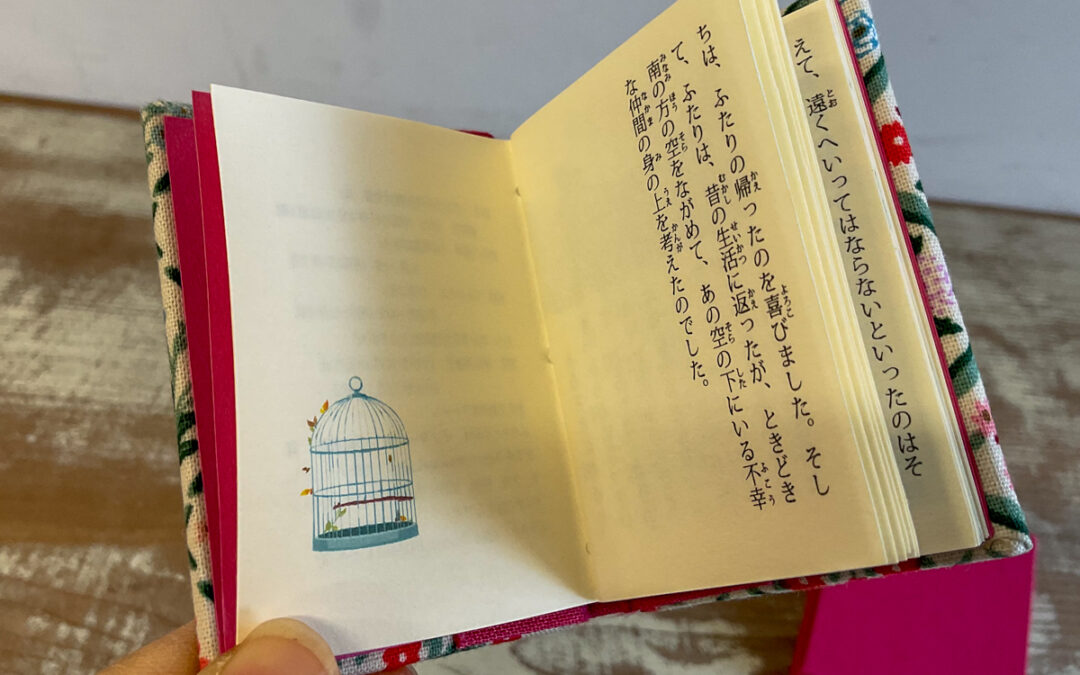 えて、遠くへいってはならないといったのはそ
ちは、ふたりの帰ったのを喜びました。そし
て、ふたりは、昔の生活に返ったが、ときどき
南の方の空をながめて、あの空の下にいる不幸
な仲間の身の上を考えたのでした。